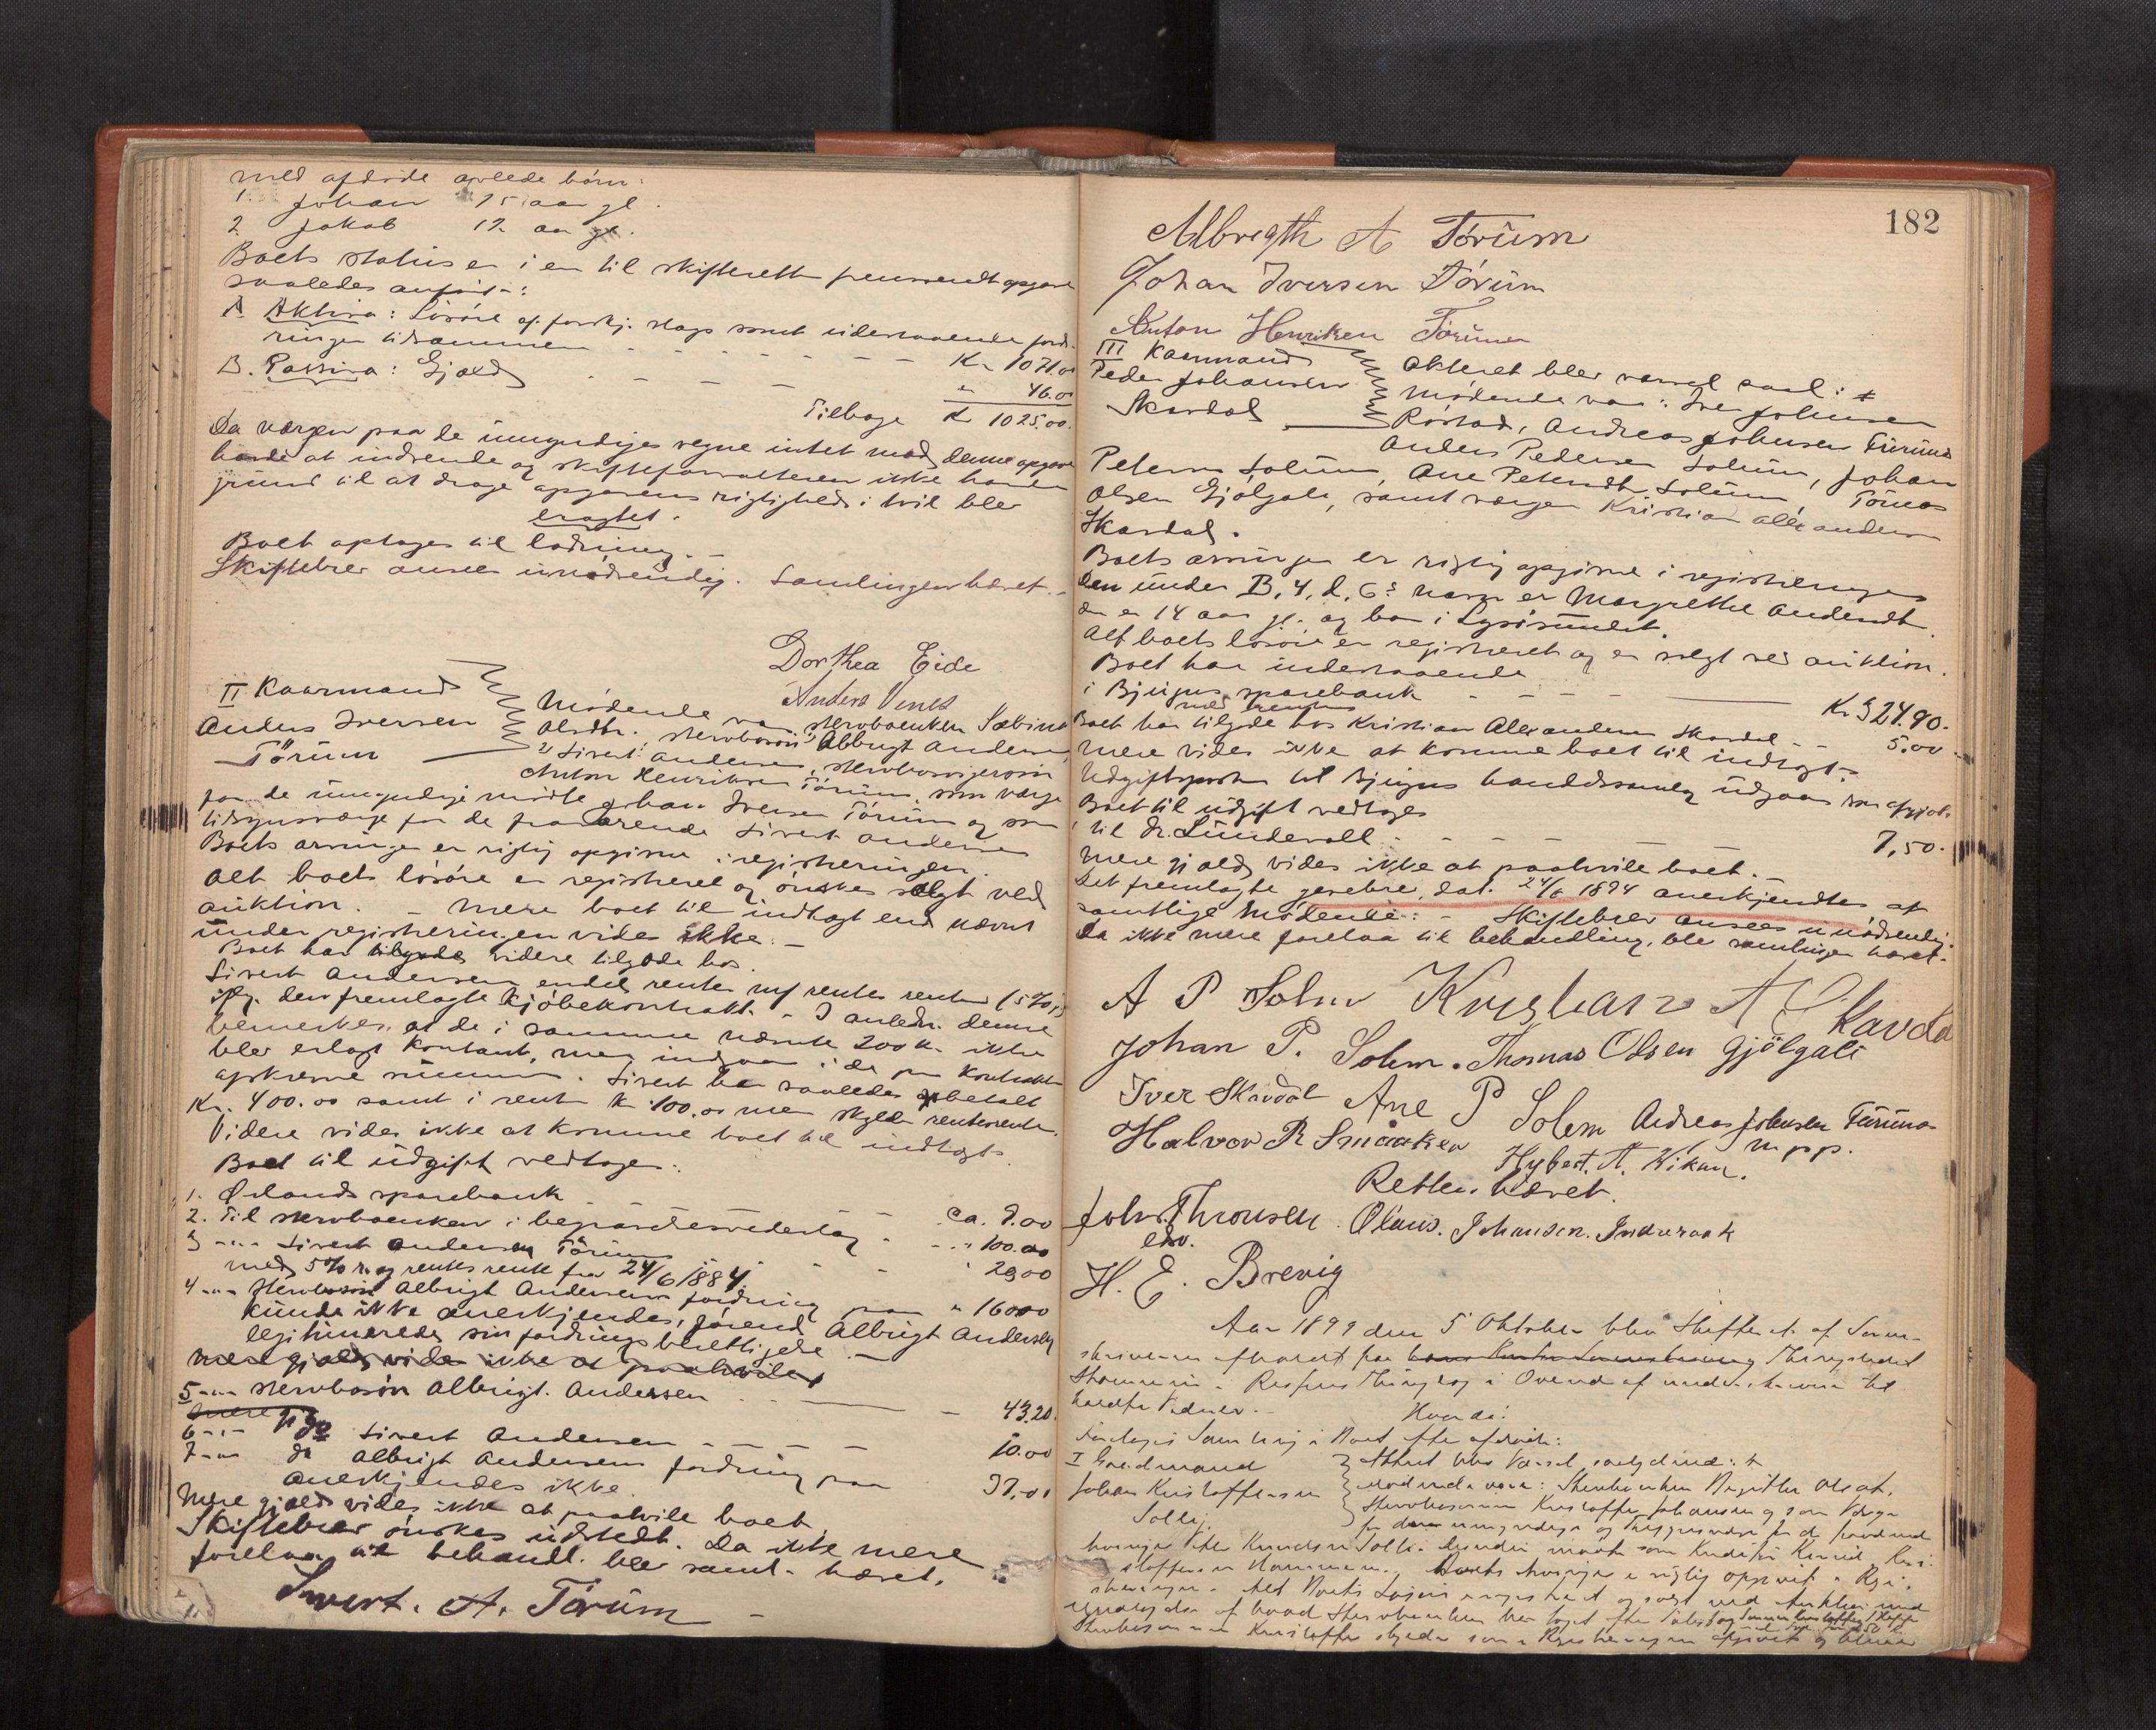 med afdøde avlede børn:
1. Johan 15 aar gl.
2. Jakob 12 aar gl.
Boets status er i en til skifteretten fremsendt opgave
saaledes anført:
A. Aktiva: Løsøre af forskj. slags samt udestaaende ford-
ringer tilsammen - - - - - - Kr. 1071.00
B. Passiva: Gjæld - - - - " 46.00
Tilbage Kr 1025.00.
Da værgen paa de umyndiges vegne intet mod denne opgave
havde at indvende og skifteforvalteren ikke havde
grund til at drage opgavens rigtighed i tvil blev
eragtet:
Boet optages til lodning. -
Skiftebrev ansees unødvendig. Samlingen hævet. -
Dorthea Eide
Anders Venes
II Kaarmand
Anders Iversen
Tørum
Mødende var sterboenken Sabina
Olsdtr., sterbosøn 1) Albrigt Andersen,
2) Sivert Andersen, sterbosvigersøn
Anton Henriksen Tørum, som værge
for de umyndige mødte Johan Iversen Tørum og som
tilsynsværge for de fraværende Sivert Andersen
Boets arvinger er rigtig opgivne i registreringen.
Alt boets løsøre er registreret og ønskes solgt ved
auktion. - Mere boet til indtægt end nævnt
under registreringen vides ikke. -
Boet har tilgode videre tilgode hos
Sivert Andersen endel renter m/ rentes renter (5%)
iflg. den fremlagte kjøbekontrakt. - I anledn. denne
bemerkes, at de i samme nævnte 200 kr. ikke
blev erlagt kontant, men indgaar i de pr kontrakten
opskrevne summer. Sivert har saaledes betalt
Kr. 400.00 samt i rente kr 100.00 men skylder rentesrente.
Videre vides ikke at komme boet til indtægt.
Boet til udgift vedtages:
1. Ørlands sparebank - - ca. 9.00
2. Til sterboenken i begravelsesvederlag - - " 100.00
3 -"- Sivert Andersen Tørum
med 5% r. og rentes rente fra 24/6 1884. - - " 29.00
4 -"- Sterbosøn Albrigt Andersens fordring paa " 160.00
kunde ikke anerkjendes, førend Albrigt Andersen
legitimerede sin fordrings berettigelse. -
Mere gjæld vides ikke at paahvile
5 -"- sterbosøn Albrigt. Andersen - - 43.20.
Mere gj
6 -"- do Sivert Andersen - - - - 10.00
7 -"- do Albrigt Andersens fordring paa 37.01
anerkjendes ikke.
Mere gjæld vides ikke at paahvile boet
Skiftebrev ønskes udstedt. Da ikke mere
forelaa til behandl. blev saml. hævet.
Sivert. A. Tørum -
182
Albregth A Tørum
Johan Iversen Tørum
Anton Henriksen Tørum
III Kaarmand
Peder Johansen
Skavdal
Aktoret blev varsel saal:
Mødende var: Iver Johnsen
Røstad, Andreas Johnsen Turuna
Anders Pedersen Solum, Johan
Petersen Solum, Ane Petersdtr. Solum, Tomas
Olsen Gjølgali, samt værgen Kristian Alexandersen
Skavdal.
Boets arvinger er rigtig opgivne i registreringen
Den under B, 4, d, 6s navn er Margrethe Andersdtr.
der er 14 aar gl. og bor i Lysøsundet.
Alt boets løsøre er registreret og er solgt ved auktion.
Boet har indestaaende
i Bjugns sparebank - - - - Kr. 324.90.
med renter
Boet har tilgode hos Kristian Alexandersen Skavdal - - 5.00.
Mere vides ikke at komme boet til indtægt.
Udgiftsposten til Bjugns handelssamlag udgaar som opgjort.
Boet til udgift vedtages
til dr. Lundevall - - - - 7,50.
Mere gjæld vides ikke at paahvile boet. -
Det fremlagte gavebrev, dat. 24/6 1894 anerkjendtes af
samtlige mødende: - Skiftebrev ansees unødvendig.
Da ikke mere forelaa til behandling, blev samlingen hævet.
A P Solm Kristian A Skavda
Johan P. Solem. Thomas Olsen Gjölgali
Iver Skavdal Ane P Solem Andreas Johnsen Turuna
m.p.p.
Halvor R Småaker Hybert. A. Wikan.
Retten hævet.
John Thronsen. Olaus. Johnnsen. Indreraak
edv.
H. E. Brevig
Aar 1899 den 5 Oktober blev Skifteret af Soren-
skriveren afholdt paa Thingstedet
i Thinglag i Overvær af underskrevne til-
kaldte Vidner. -
Hvorda:
Foretages Samling i Boet efter afdøde:
I Gaardmand
Johan Kristoffersen
Solli.
Aktoret blev Varsel, saalydende:
Mødende var: Sterboenken Birgitte Olsdt.
Sterbosønnen Kristoffer Johansen og som Værge
for den umyndige og Tilsynsværge for de fraværende
Arvinger Peter Knudsen Solli.
Boets Arvinger er rigtig opgivet i Regi-
streringen. Alt Boets Løsøre er registreret og solgt ved Auktion med
Undtagelse af hvad Sterboenken har taget efter
Sterbosønnen Kristoffer skylder som i Registreringen opgivet og bliver